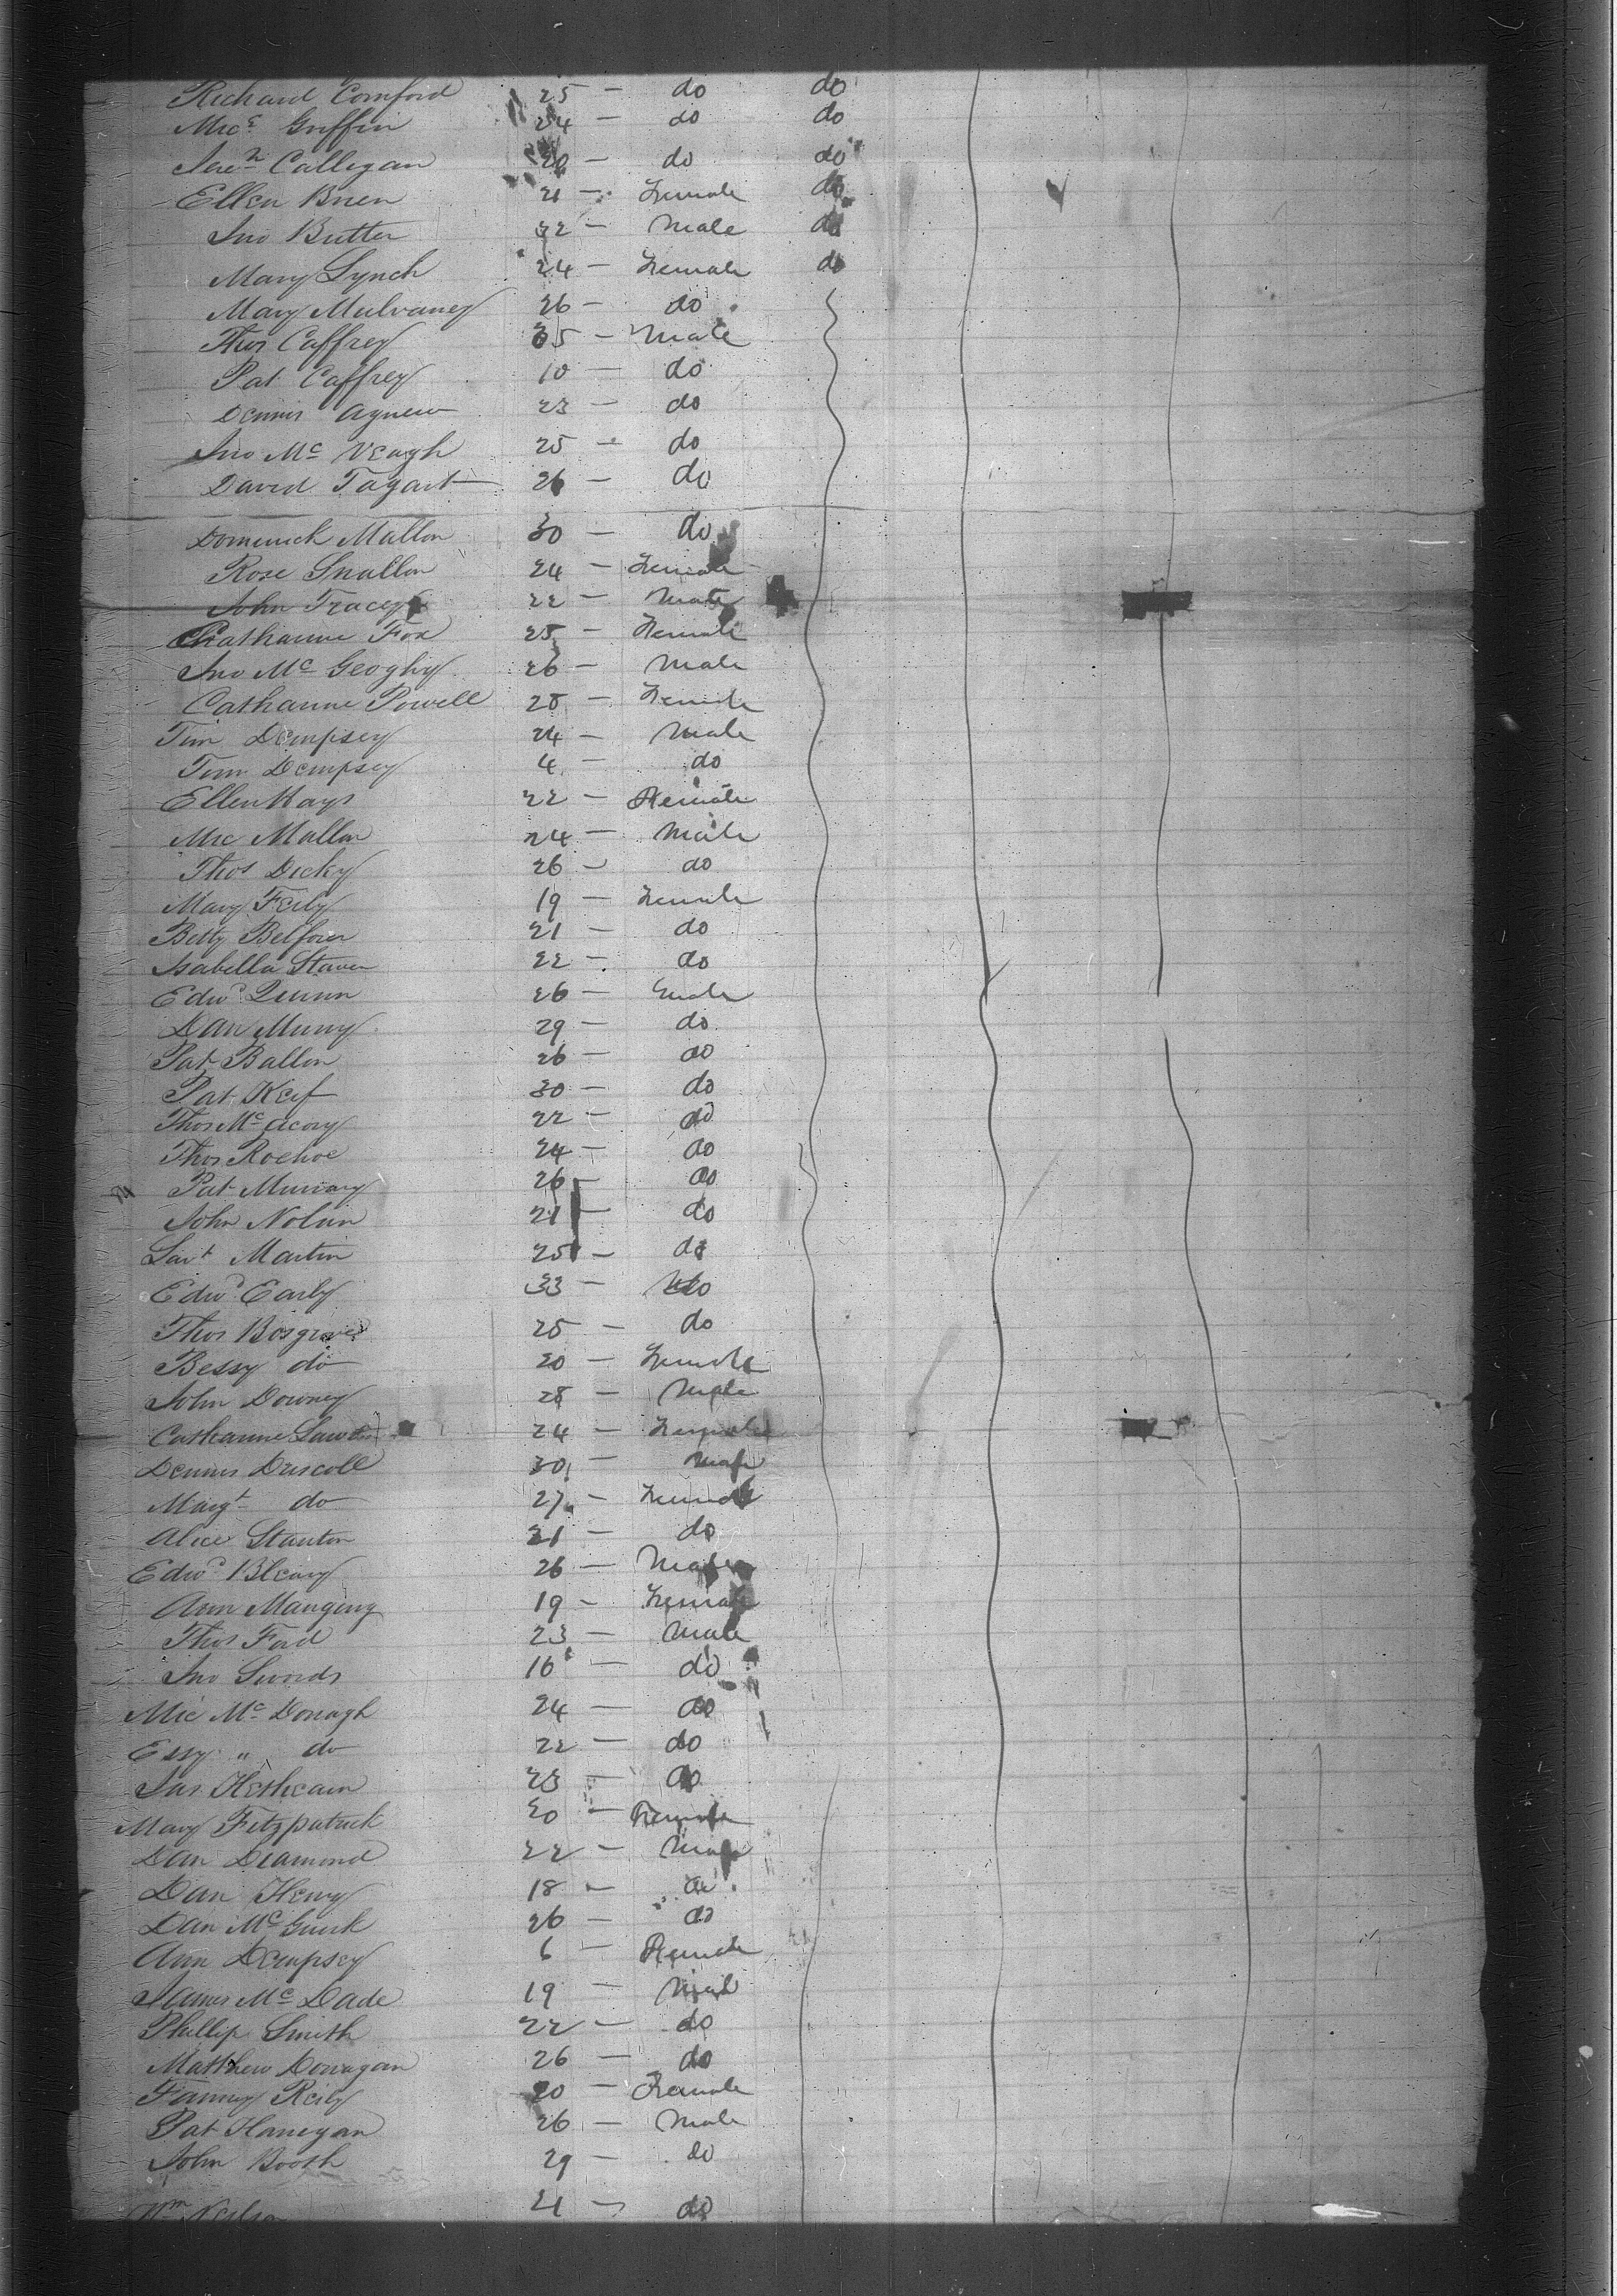 Richard Comford 25 - do do
Mics Griffin 24 - do do
Calligan 20 - do do
Ellen Brien 21 - Female do
Jno Butter 22 - Male do
Mary Lynch 24 - Female do
Mary Mulvaney 26 - do
Thos Caffrey 35 - Male
Pat Caffrey 10 - do
Dennis Agnew 23 - do
Jno Mc Veagh 25 - do
David Tagart 26 - do
Domenick Mallon 30 - do
Rose 24 - Female
John Tracey 22 - Male
Catharine Fox 25 - Female
Jno Mc Geoghy 26 - Male
Catharine Powell 28 - Female
Tim Dempsey 24 - Male
Tom Dempsey 4 - do
Ellen Hays 22 - Female
Mic Mallon 24 - Male
Thos Dicky 26 - do
Mary Feily 19 - Female
Betty Belfour 21 - do
Isabella Staven 22 - do
Edwd Quinn 26 - Male
Dan Murry 29 - do
Pat Ballon 26 - do
Pat Keif 30 - do
Thos Mc 22 - do
Thos Roehoe 24 - do
Pat Murray 26 - do
John Nolan 21 - do
Martin 25 - do
Edwd Early 33 - do
Thos Bosgrave 25 - do
Bessy do 20 - Female
John Downey 28 - Male
Catharine 24 - Female
Dennis Driscoll 30 - Male
Margt do 27 - Female
Alice Stanton 21 - do
Edwd Bleary 26 - Male
Ann Manging 19 - Female
Thos Ford 23 - Male
Jno Swords 16 - do
Mic Mc Donagh 24 - do
Essy " do 22 - do
Jas 23 - do
Mary Fitzpatrick 20 - Female
Dan Diamond 22 - Male
Dan Henry 18 - do
Dan Mc Guirk 26 - do
Ann Dempsey 6 - Female
James Mc Dade 19 - Male
Phillip Smith 22 - do
Matthew Donagan 26 - do
Fanney Reily 20 - Female
Pat Hanegan 26 - Male
John Booth 29 - do
Wm 21 - do